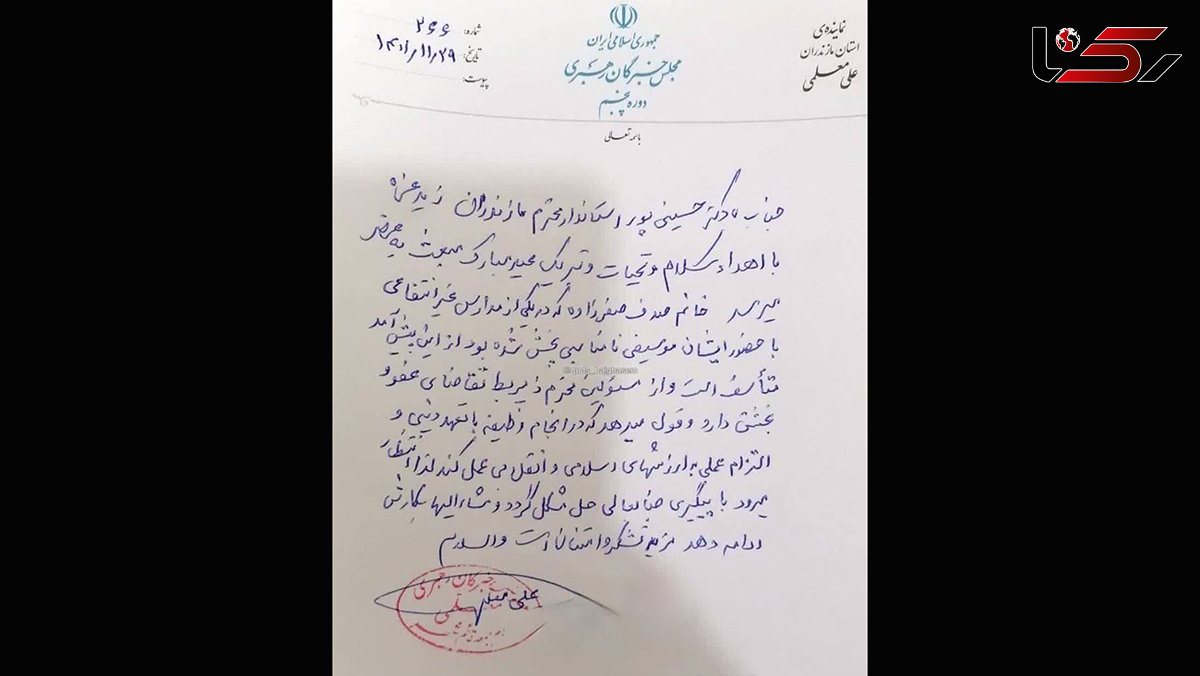 جمهوری اسلامی ایران
مجلس خبرگان رهبری
دوره پنجم
نماینده‌ی
استان مازندران
علی معلمی
شماره: ۲۶۶
تاریخ: ۱۴۰۱/۱۱/۲۹
پیوست:
رکنا
باسمه تعالی
جناب دکتر حسینی پور استاندار محترم مازندران زید عزه
با اهداء سلام و تحیات و تبریک عید مبارک مبعث به محضر
میرسد خانم صدف صفرزاده که در یکی از مدارس غیر انتفاعی
با حضور ایشان موسیقی نامناسبی پخش شده بود از این پیش آمد
متأسف است و از مسئولین محترم ذیربط تقاضای عفو و
بخشش دارد و قول میدهد که در انجام وظیفه با تعهد دینی و
التزام عملی به ارزشهای اسلامی و انقلابی عمل کند لذا انتظار
میرود با پیگیری جنابعالی حل مشکل گردد و مشاءالیها بکارش
ادامه دهد مزید تشکر و امتنان است والسلام
علی معلمی
خبرگان رهبری
@quds_hajghasem